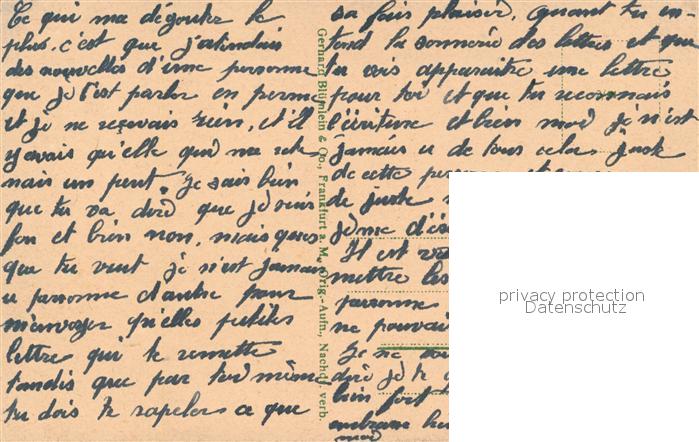 Ce qui ma dégouter le
plus, c'est que j'attendais
des nouvelles d'une personne
que je t'est parler en perme
et je ne reçevais rien, et il
y avais qu'elle qui me rete
nais un peut. Je sais bien
que tu va dire que je suis
fou et bien non, mais ques
que tu veut je n'est jamais
u personne d'autre pour
m'envoyer qu'elles petites
lettre qui te remette
tandis que par toi même
tu dois te rapeler ce que
Gerhard Blümlein & Co., Frankfurt a. M. Orig.-Aufn., Nachdr. verb.
sa fais plaisir, quant tu en-
tend la sonnerie des lettres et que
tu vois apparaitre une lettre
pour toi et que tu reconnais
l'écriture et bien moi je n'est
jamais u de tous celas juste
de cette
de juste
j'éme d'éc
Il est vrai
mettre les
personne
ne pouvai
Je ne
dire je te
bien fort
embrasse
moi
privacy protection
Datenschutz